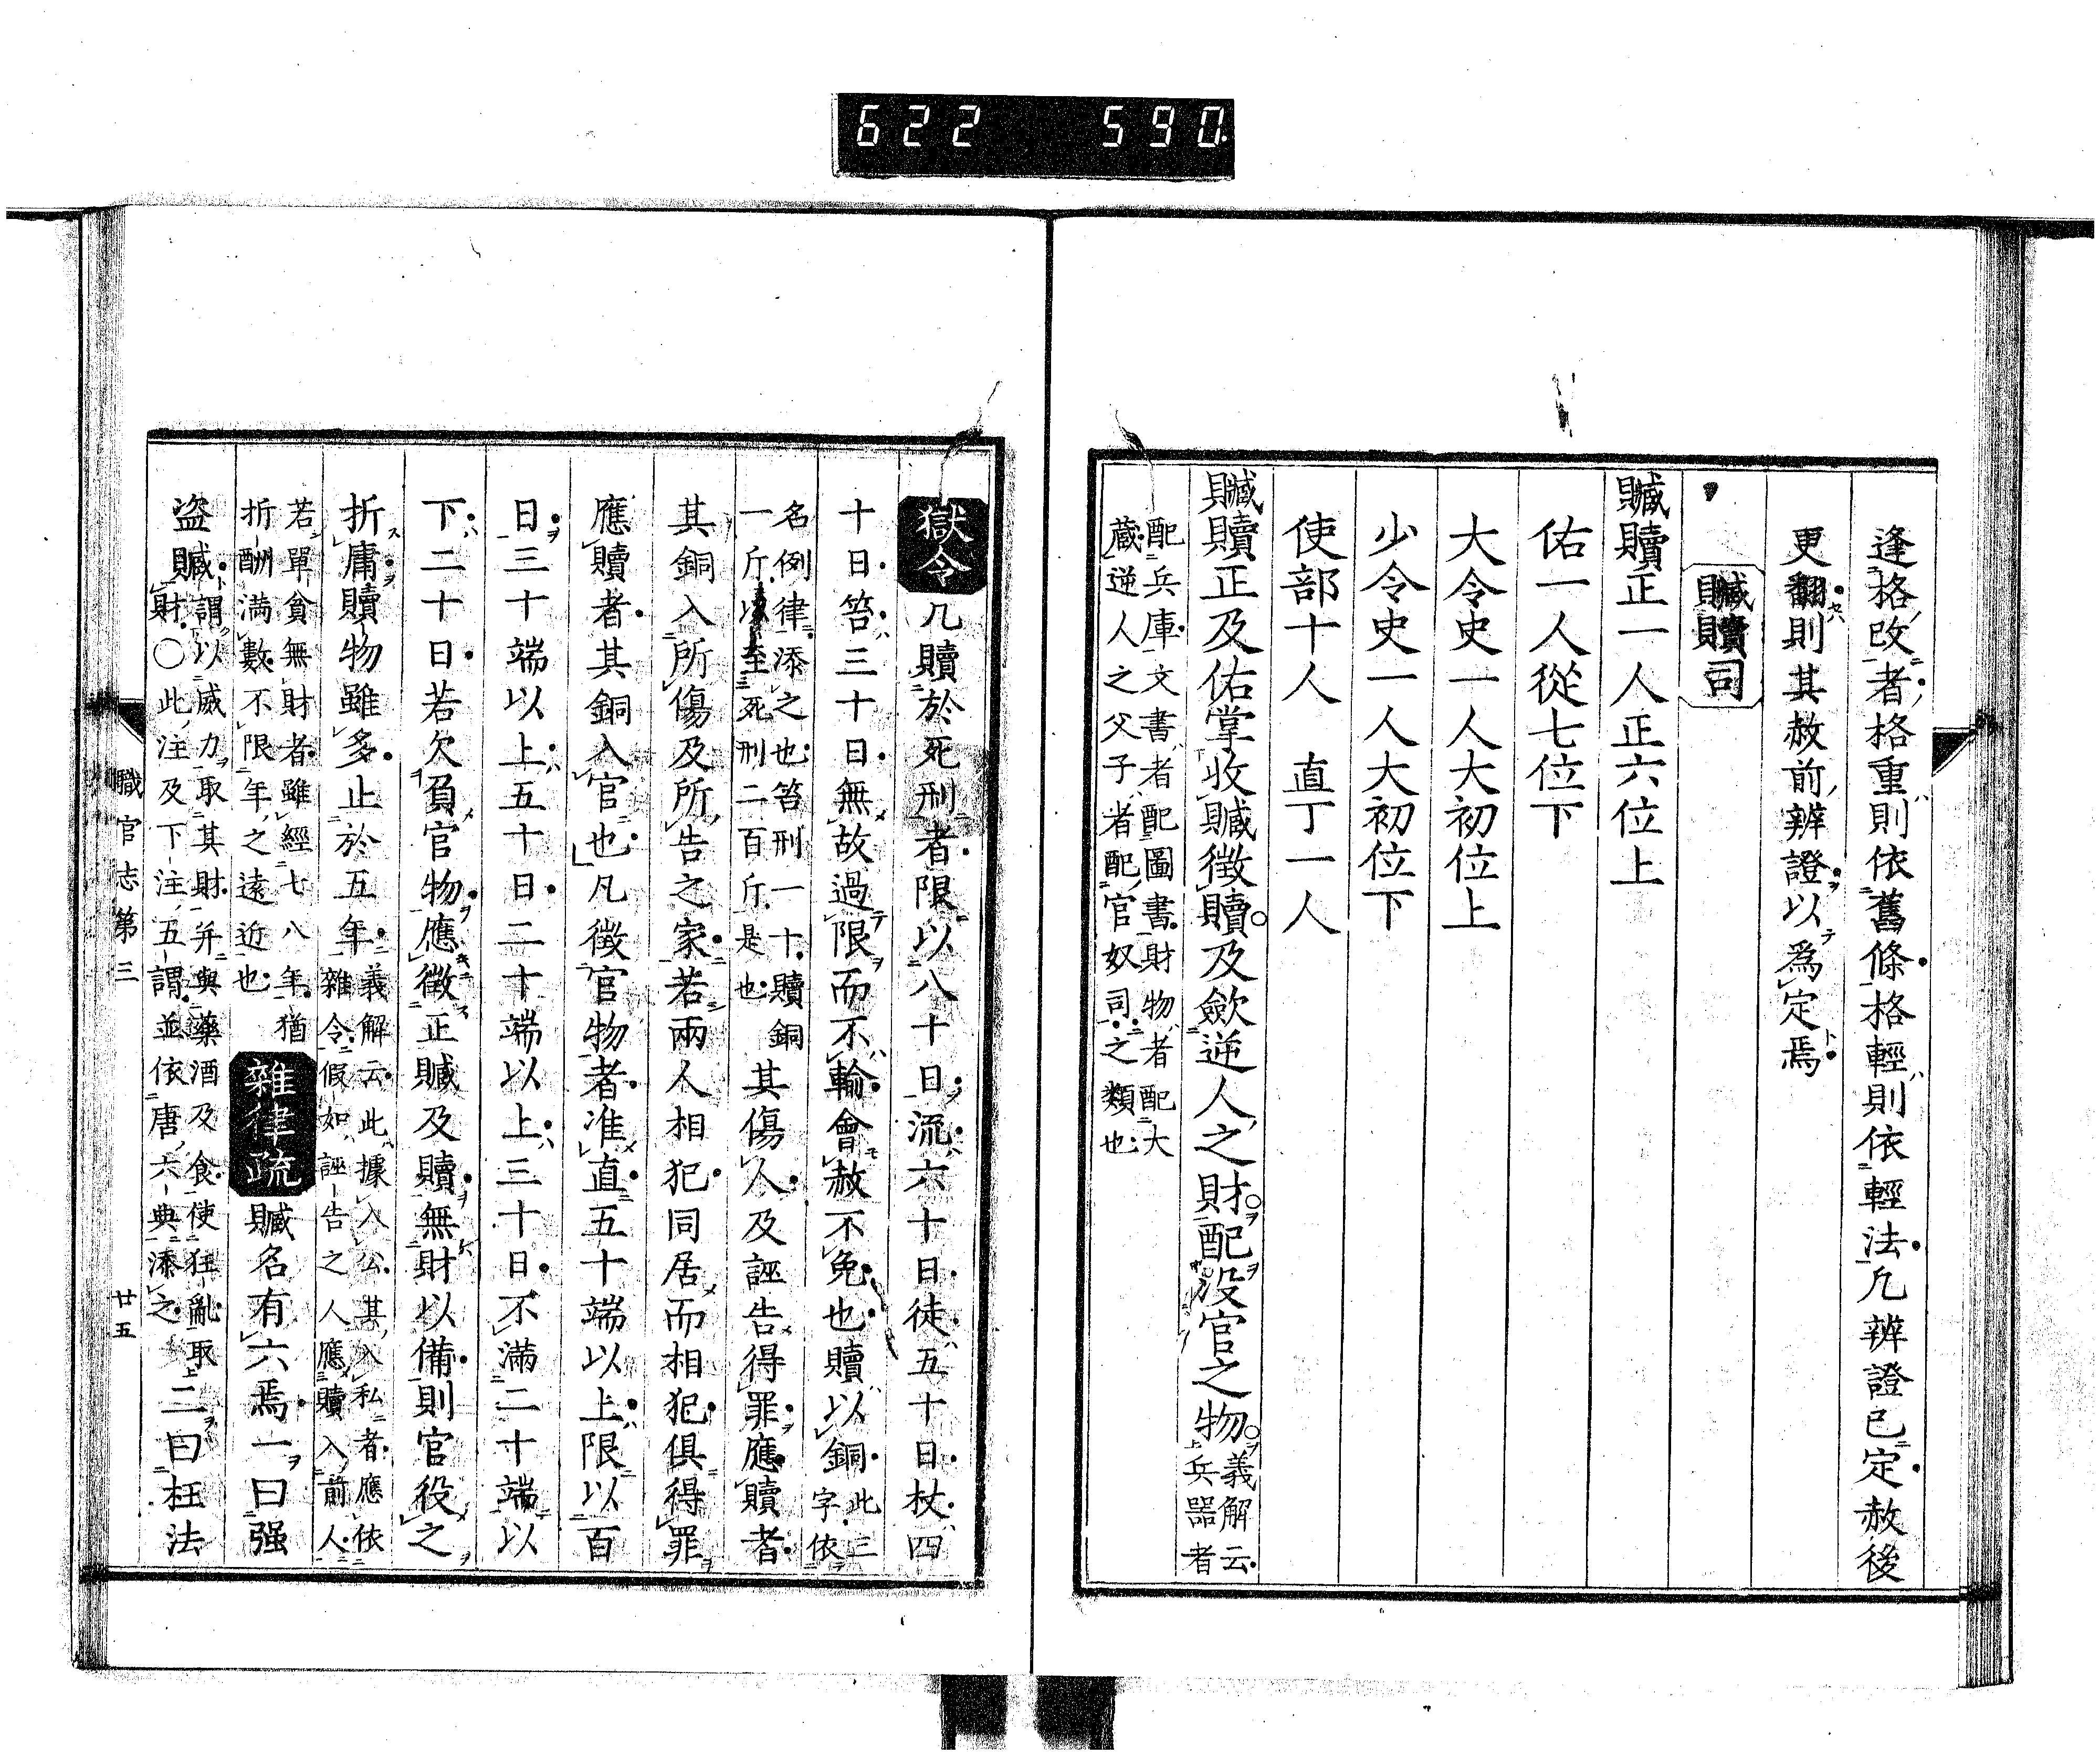 622 590
逢格改者格重則依舊條格輕則依輕法凢辨證已定赦後
更翻則其赦前辨證以爲定焉
贓贖司
贓贖正一人正六位上
佑一人從七位下
大令史一人大初位上
少令史一人大初位下
使部十人 直丁一人
贓贖正及佑掌收贓徴贖及斂逆人之財配没官之物
義解云
兵器者
配兵庫文書者配圖書財物者配大
藏逆人之父子者配官奴司之類也
獄令凢贖於死刑者限以八十日流六十日徒五十日杖四
十日笞三十日無故過限而不輸會赦不免也贖以銅
此三
字依
名例律添之也笞刑一十贖銅
一斤以至死刑二百斤是也
其傷人及誣告得罪應贖者
其銅入所傷及所告之家若兩人相犯同居而相犯俱得罪
應贖者其銅入官也凡徴官物者准直五十端以上限以百
日三十端以上五十日二十端以上三十日不滿二十端以
下二十日若欠負官物應徴正贓及贖無財以備則官役之
折庸贖物雖多止於五年
義解云此據入公其入私者應依
雜令假如誣告之人應贖入前人
若單貧無財者雖經七八年猶
折酬満數不限年之遠近也
雜律疏贓名有六焉一曰强
盗贓
謂以威力取其財并與藥酒及食使狂亂取
財〇此注及下注五謂並依唐六典添之
二曰枉法
職官志第三
廿五